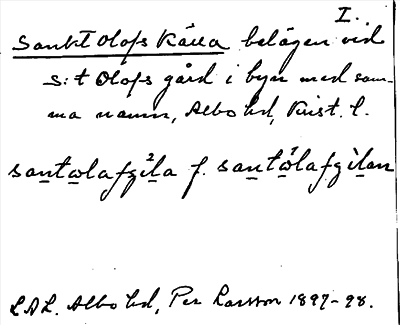 I.
Sankt Olofs Källa belägen vid
S:t Olofs gård i byn med sam-
ma namn, Albo hd, Krist. l.
santolafçi²la f. santo¹lafçilan
L.A.L. Albo hd, Per Larsson 1897-98.